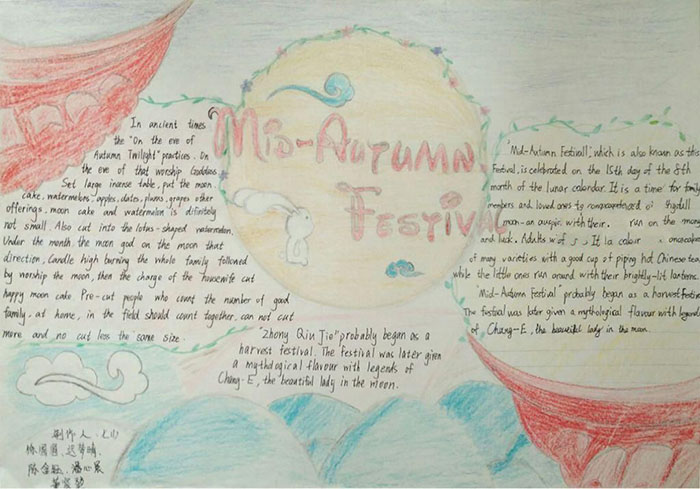 MID-AUTUMN
FESTIVAL
In ancient times
the "On the eve of
Autumn Twilight" practices. On
the eve of that worship Goddess.
Set large incense table, put the moon
cake, watermelons, apples, dates, plums, grapes other
offerings, moon cake and watermelon is difinitely
not small. Also cut into the lotus-shaped watermelon.
Under the month the moon god on the moon that
direction, Candle high burning the whole family followed
by worship the moon, then the charge of the housewife cut
happy moon cake. Pre-cut people who count the number of good
family, at home, in the field should count together, can not cut
more and no cut less the same size.
"Zhong Qiu Jie" probably began as a
harvest festival. The festival was later given
a mythological flavour with legends of
Chang-E, the beautiful lady in the moon.
"Mid-Autumn Festival", which is also known as this
Festival, is celebrated on the 15th day of the 8th
month of the lunar calendar. It is a time for family
members and loved ones to
moon-an with their. run on the
and luck. Adults It la
of many varieties with a good cup of piping hot Chinese tea,
while the little ones run around with their brightly-lit lanterns.
"Mid-Autumn Festival" probably began as a harvest festival
The festival was later given a mythological flavour with legends
of Chang-E, the beautiful lady in the moon.
制作人: